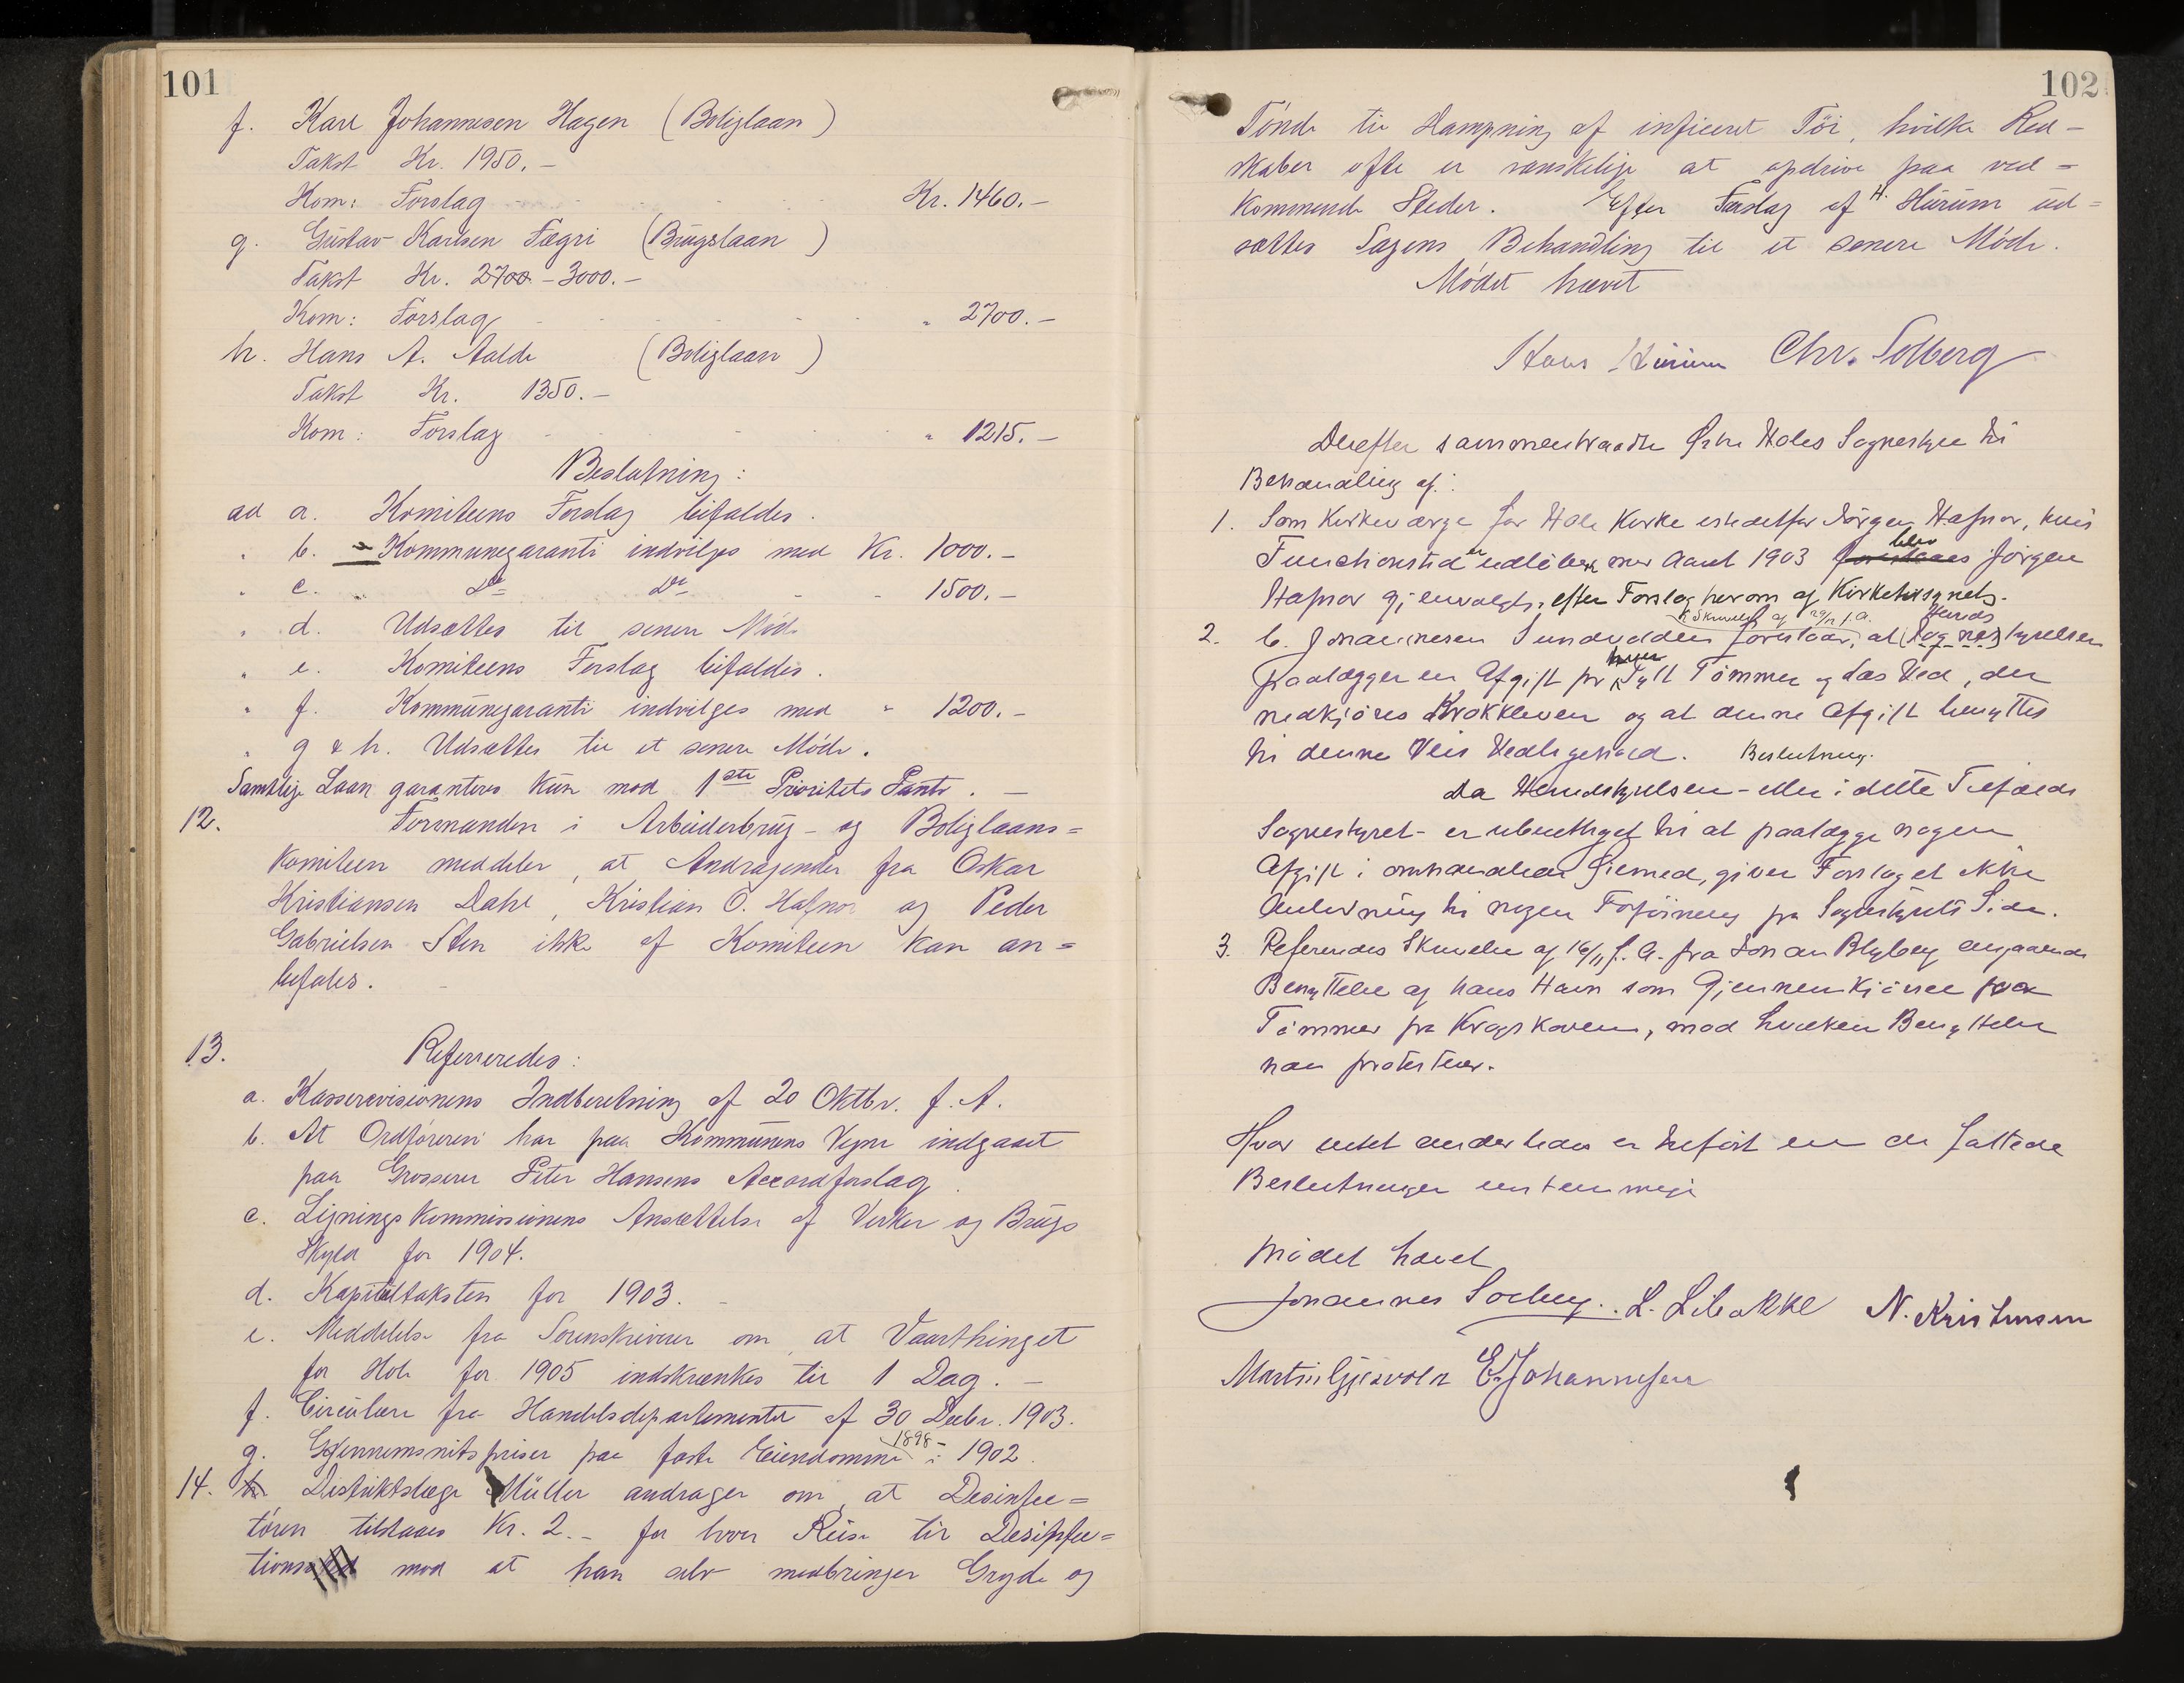 101
f. Karl Johannesen Hagen (Boliglaan)
Takst Kr. 1950.-
Kom: Forslag Kr. 1460.-
g. Gustav Karlsen Fægri (Brugslaan)
Takst Kr. 2700.-3000.-
Kom: Forslag " 2700.-
h. Hans A. Aalde (Boliglaan)
Takst Kr. 1350.-
Kom: Forslag " 1215.-
Beslutning:
ad a. Komiteens Forslag bifaldes.
" b. Kommunegaranti indvilges med Kr. 1000.-
" c. Do Do - - 1500.-
" d. Udsættes til senere Møde
" e. Komiteens Forslag bifaldes.
" f. Kommunegaranti indvilges med " 1200.-
" g & h. Udsættes til et senere Møde.
Samtlige Laan garanteres kun mod 1ste Prioritets Pant. -
12. Formanden i Arbeiderbrug- og Boliglaans=
komiteen meddeler, at Andragender fra Oskar
Kristiansen Dahl, Kristian O. Hafnor og Peder
Gabrielsen Sten ikke af Komiteen kan an=
befales.
13. Refereredes:
a. Kasserevisionens Indberetning af 20 Oktbr. f. A.
b. At Ordføreren har paa Kommunens Vegne indgaaet
paa Grosserer Peter Hansens Accordforslag.
c. Ligningskommissionens Ansættelse af Verker og Brugs
Skyld for 1904.
d. Kapitaltaksten for 1903.
e. Meddelelse fra Sorenskriveren om, at Vaarthinget
for Hole for 1905 indskrænkes til 1 Dag. -
f. Circulære fra Handelsdepartementet af 30 Decbr. 1903.
g. Gjennemsnitspriser paa faste Eiendomme i 1898- 1902.
14. Distriktslæge Müller andrager om, at Desinfec=
tøren tilstaaes Kr. 2.- for hver Reise til Desinfec=
tions mod at han selv medbringer Gryde og
102
Tønde til Dampning af inficeret Tøi, hvilke Red-
skaber ofte er vanskelige at opdrive paa ved=
kommende Steder. Efter Forslag af H. Hurum ud=
sættes Sagens Behandling til et senere Møde.
Mødet hævet
Hans Hurum Chr. Solberg
Derefter sammentraadte Østre Holes Sognestyre til
Behandling af:
1. Som Kirkeværge for Hole Kirke istedetfor Jörgen Hafnor, hvis
Functionstid er udløben med Aaret 1903 blev Jörgen
Hafnor gjenvalgt, efter Forslag herom af Kirketilsynet.
2. C. Johannesen Sundvolden i Skrivelse af 29/12 f. A. foreslaar, at (Sogne) Herredsstyrelsen
paalægger en Afgift pr hver Tylt Tømmer og Las Ved, der
nedkjøres Krokkleven og at denne Afgift benyttes
til denne Veis Vedligehold. Beslutning.
Da Herredstyrelsen - eller i dette Tilfælde
Sognestyret - er uberettiget til at paalægge nogen
Afgift i omhandlede Øiemed, giver Forslaget ikke
Anledning til nogen Føføining fra Sognestyrets Side.
3. Refereredes Skrivelse af 16/11 f. A. fra Johan Blyberg angaaende
Benyttelse af hans Havn som Gjennemkjörsel for
Tømmer fra Krogskoven, mod hvilken Benyttelse
han protesterer.
Hvor intet anderledes er tilført er de fattede
Beslutninger enstemmige
Mødet hævet
Johannes Solberg. L. Libakke N. Kristensen
Martin Gjesvold E. Johannesen